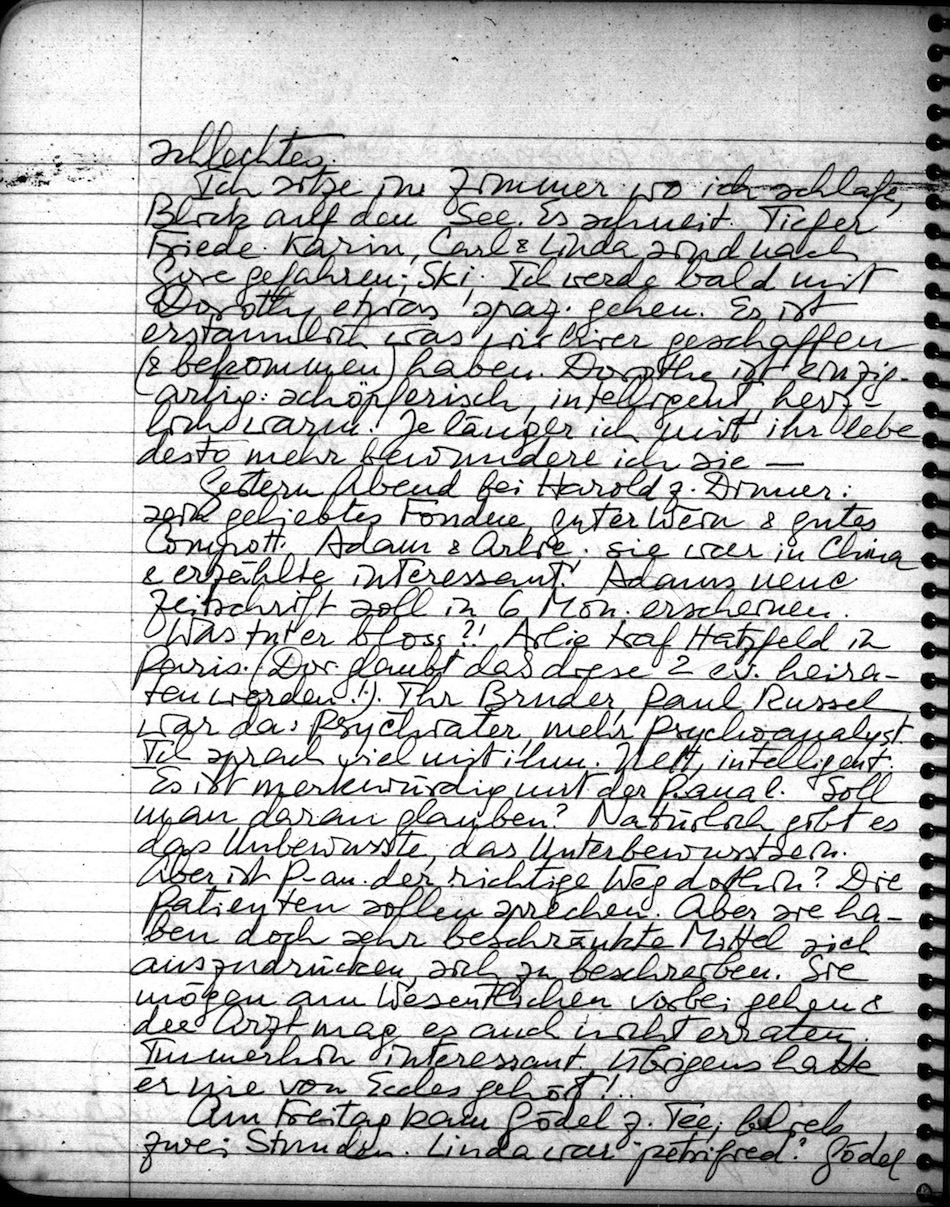 schlechtes.
Ich sitze im Zimmer wo ich schlafe,
Blick auf den See. Es schneit. Tiefer
Friede. Karin, Carl & Linda sind nach
gefahren; Ski. Ich werde bald mit
Dorothy etwas spaz. gehen. Es ist
erstaunlich was wir hier geschaffen
(& bekommen) haben. Dorothy ist einzig-
artig: schöpferisch, intelligent, herz-
lich warm. Je länger ich mit ihr lebe
desto mehr bewundere ich sie —
Gestern Abend bei Harold z. Dinner:
sein geliebtes Fondue, guter Wein & gutes
Compott. Adam & Arlie. sie war in China
& erzählte interessant. Adams neue
Zeitschrift soll in 6 Mon. erscheinen.
Was tut er bloss?! Arlie traf Hatzfeld in
Paris. (Dor. glaubt das diese 2 ev. heira-
ten werden!). Ihr Bruder, Paul Russel
war da: Psychiater, mehr Psychoanalyst.
Ich sprach viel mit ihm. Nett, intelligent.
Es ist merkwürdig mit der P.anal. Soll
man daran glauben? Natürlich gibt es
das Unbewusste, das Unterbewusstsein.
Aber ist P-an. der richtige Weg dorthin? Die
Patienten sollen sprechen. Aber sie ha-
ben doch sehr beschränkte Mittel sich
auszudrücken, sich zu beschreiben. Sie
mögen am Wesentlichen vorbei gehen &
der Arzt mag es auch nicht erraten.
Immerhin interessant. Übrigens hatte
er nie von Eccles gehört!..
Am Freitag kam Gödel z. Tee, blieb
zwei Stunden. Linda war "petrified". Gödel